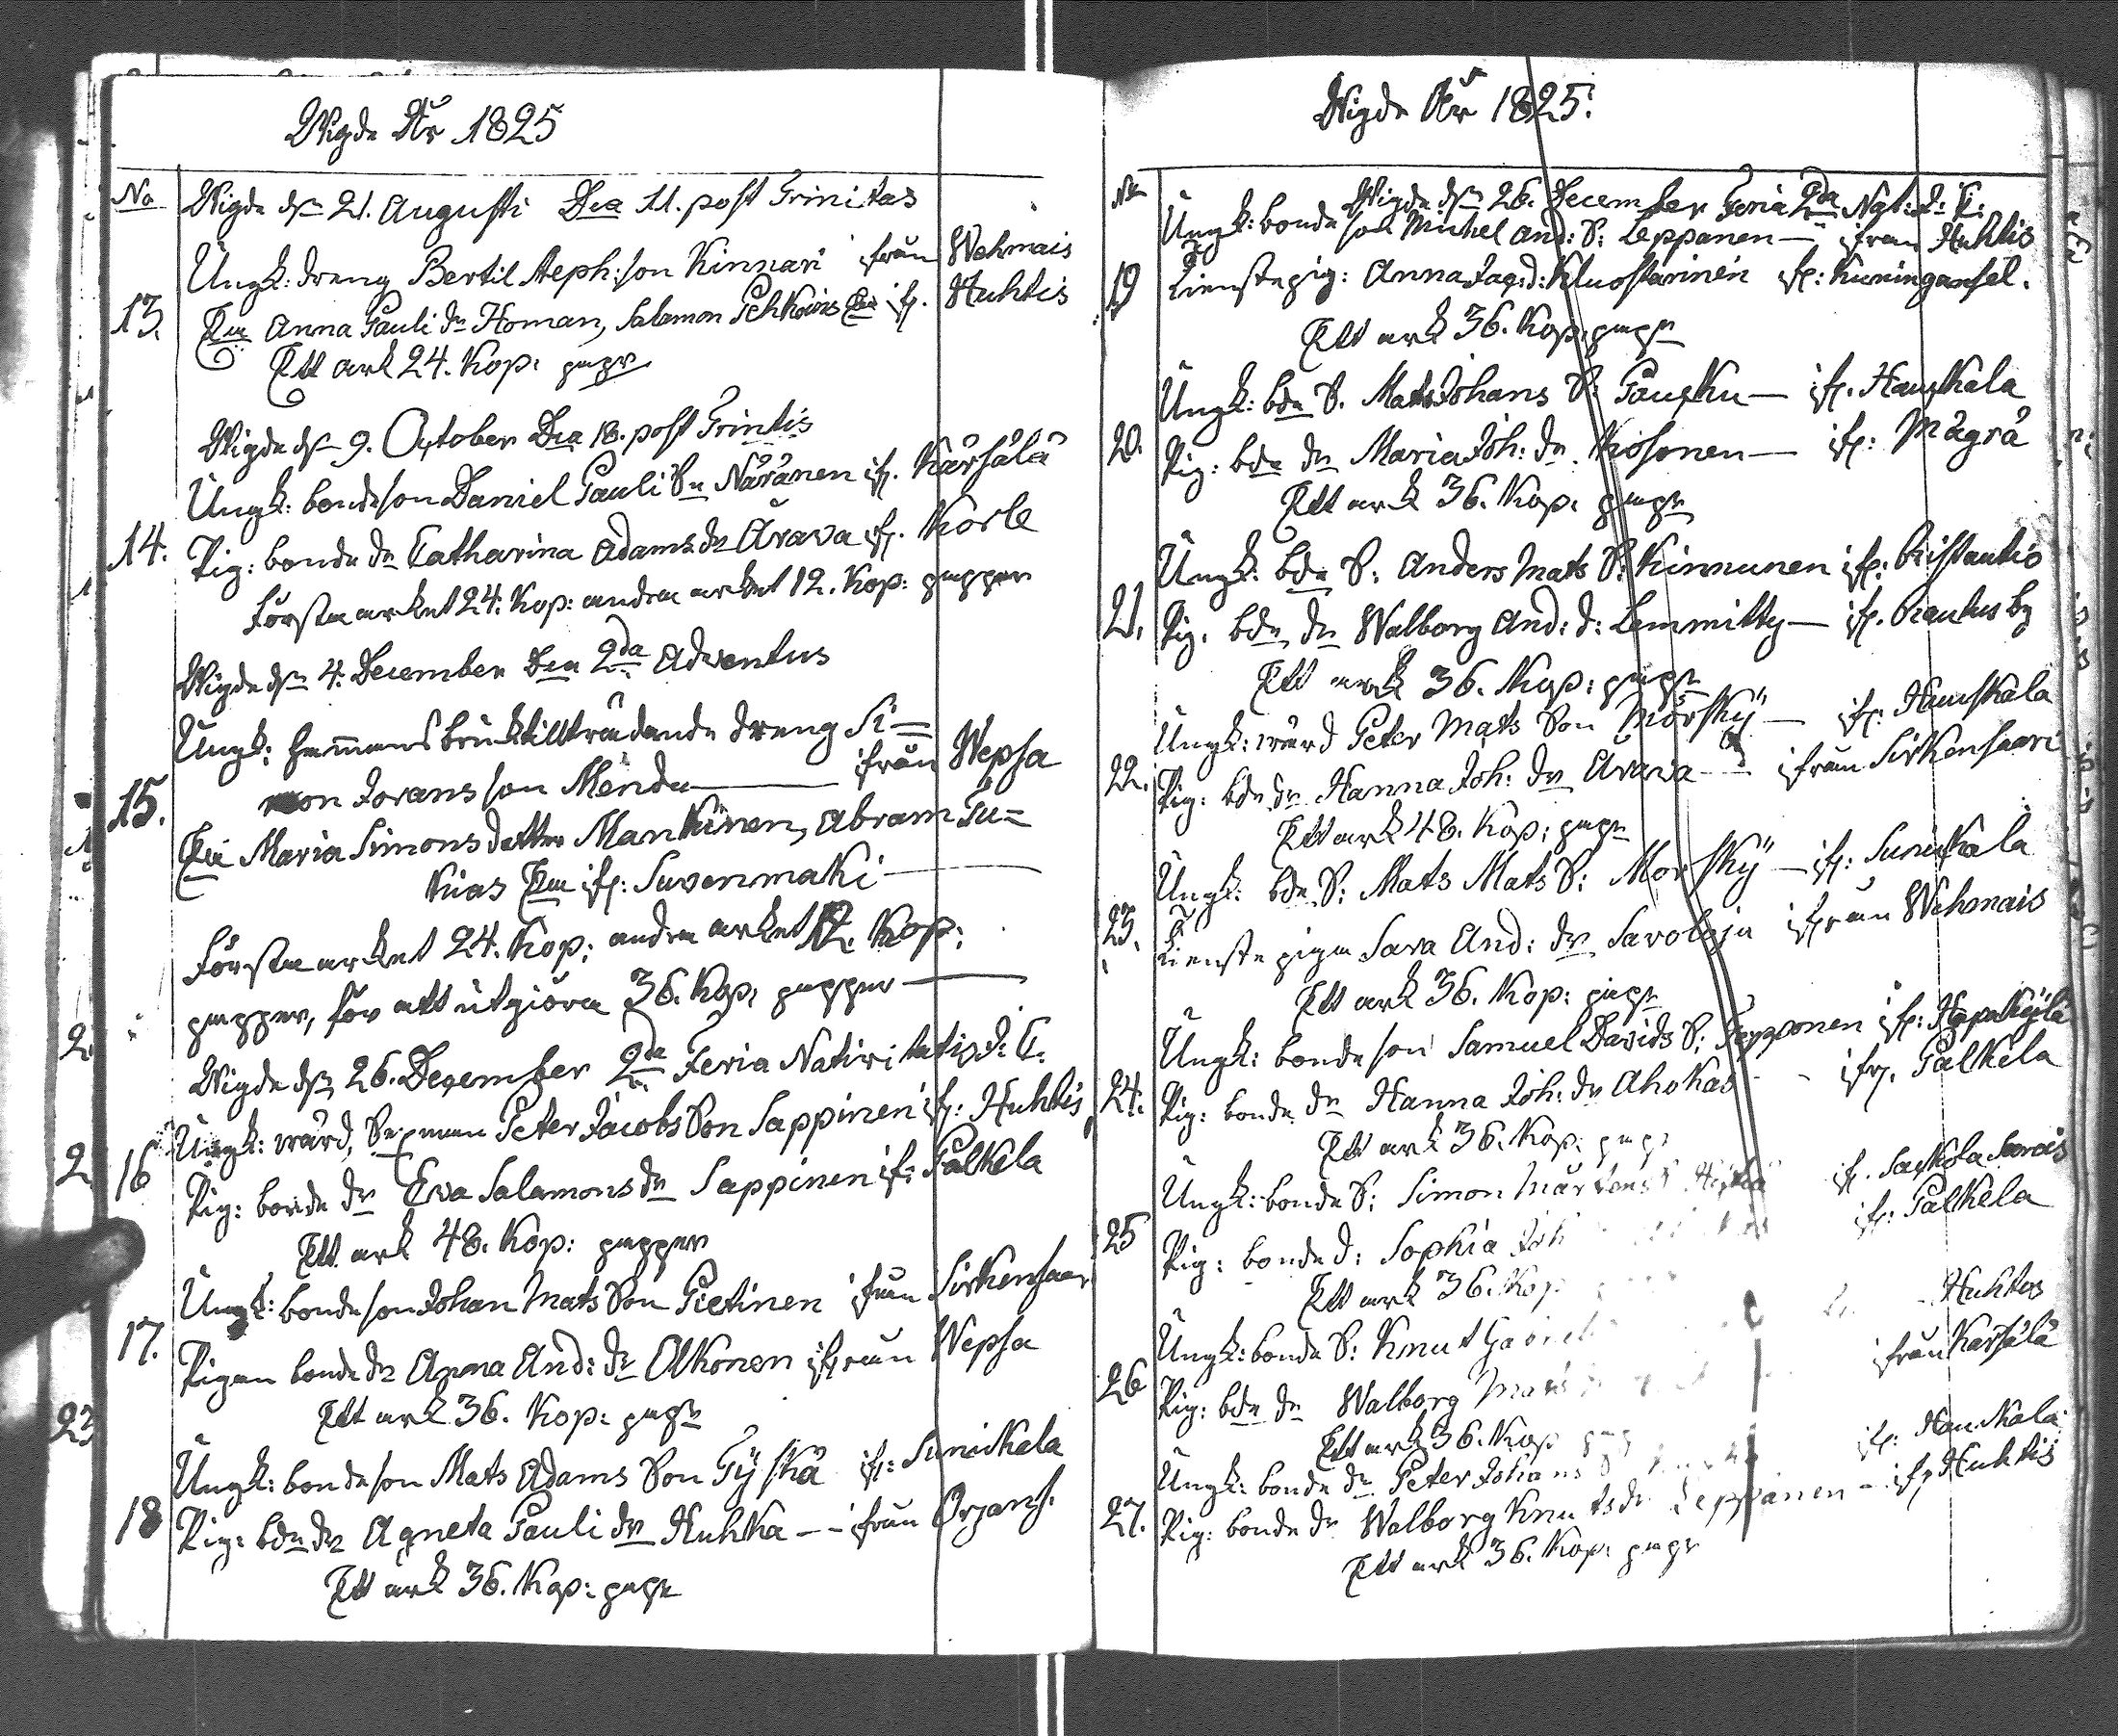 Wigde År 1825
No Wigde dn 21. Augusti Dca 11. post Trinitas
Ungk: dreng Bertil Steph:son Kinnari ifrån Wehmais
13. Enk Anna Pauli dr Homan, Salomon Pehkoins Enk ifr. Huhtis
Ett ark 24. Kop: papr
Wigde dn 9. October Dca 18. post Trintis
Ungk: bondeson Daniel Pauli Sn Näränen ifr. Kärsälä
14. Pig: bonde dr Catharina Adams dr Ärava ifr. Korle
Första arket 24. Kop: andra arket 12. Kop: papper
Wigde dn 4. December Dca 2da Adventus
Ungk: hemmans bruk tillträdande dreng Si=
15. mon Jorans son Mendu ifrån Wepsa
Enk Maria Simons dotter Mankinen, Abram Tu=
kias Enk ifr: Suvenmaki
Första arket 24. Kop: andra arket 12. Kop:
papper, för att utgiöra 36. Kop: papper
Wigde dn 26. December 2da Feria Nativitatis d: C:
16 Ungk: wärd, Sexman Peter Jacobs Son Sappinen ifr: Huhtis
Pig: bonde dr Eva Salamons dr Sappinen ifr: Palkela
Ett ark 48. Kop: papper
Ungk: bondeson Johan Mats Son Pietinen ifrån Sirkensaar
17. Pigan bonde dr Anna And: dr Alkonen ifrån Wepsa
Ett ark 36. Kop: papr
Ungk: bondeson Mats Adams Son Pyskä ifr: Sunickala
18 Pig: bde dr Agneta Pauli dr Huhka ifrån Orjans.
Ett ark 36. Kop: papr
Wigde År 1825.
Nr Wigde dn 26. December Feria 2da Nat: d: C:
Ungk: bondeson Michel And: S: Leppanen ifrån Huhtis
19 Tienstepig: Anna Jag: d: Kluostarinen ifr: Kuningansel.
Ett ark 36. Kop: papr
Ungk: bde S. Mats Johans S: Pausku ifr. Hauskala
20. Pig: bde dr Maria Joh: dr Kosonen ifr: Mägrä
Ett ark 36. Kop: papr
Ungk: bde S: Anders Mats S: Kinnunen ifr: Ristautio
21. Pig. bde dr Walborg And: d: Lemmitty ifr. Rautus by
Ett ark 36. Kop: papr
Ungk: wärd Peter Mats Son Mörsky ifr: Hauskala
22. Pig: bde dr Hanna Joh: dr Ärava ifrån Sirkensaari
Ett ark 48. Kop: papr
Ungk: bde S: Mats Mats S: Morsky ifr: Sunickala
23. Tienste pigan Sara And: dr Savolaja ifrån Wehmais
Ett ark 36. Kop: papr
Ungk: bondeson Samuel Davids S: Tepponen ifr: Hapakylä
24. Pig: bonde dr Hanna Joh: dr Ahokas ifr. Palkela
Ett ark 36. Kop: pap
Ungk: bonde S: Simon Mårtens ifr. Saskola
25 Pig: bonde d: Sophia Joh ifr: Palkela
Ett ark 36. Kop
Ungk: bonde S: Knut Gabriel Huhtis
26 Pig: bde dr Walborg Mats ifrån Kärsälä
Ett ark 36. Kop
Ungk: bonde dr Peter Johans ifr: Hauskala
27. Pig: bonde dr Walborg Knuts dr Leppänen ifr Huhtis
Ett ark 36. Kop: papr